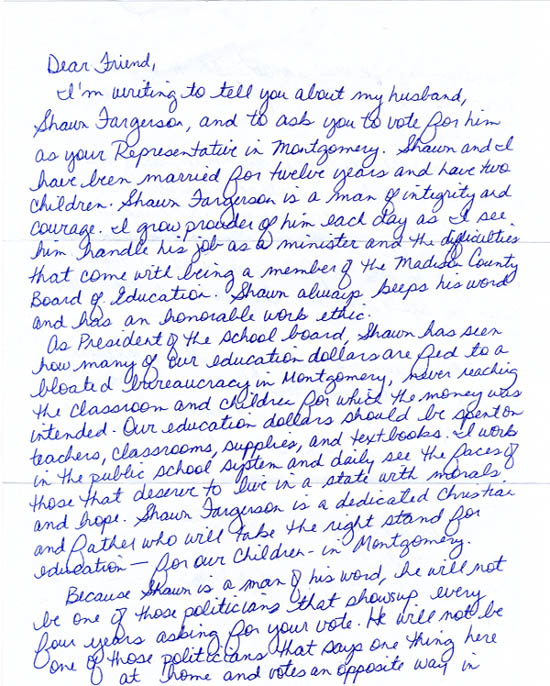 Dear Friend,
I'm writing to tell you about my husband,
Shawn Fargerson, and to ask you to vote for him
as your Representative in Montgomery. Shawn and I
have been married for twelve years and have two
children. Shawn Fargerson is a man of integrity and
courage. I grow prouder of him each day as I see
him handle his job as a minister and the difficulties
that come with being a member of the Madison County
Board of Education. Shawn always keeps his word
and has an honorable work ethic.
As President of the school board, Shawn has seen
how many of our education dollars are fed to a
bloated bureaucracy in Montgomery, never reaching
the classroom and children for which the money was
intended. Our education dollars should be spent on
teachers, classrooms, supplies, and textbooks. I work
in the public school system and daily see the faces of
those that deserve to live in a state with morals
and hope. Shawn Fargerson is a dedicated Christian
and father who will take the right stand for
education — for our children - in Montgomery.
Because Shawn is a man of his word, he will not
be one of those politicians that shows up every
four years asking for your vote. He will not be
one of those politicians that says one thing here
at home and votes an opposite way in